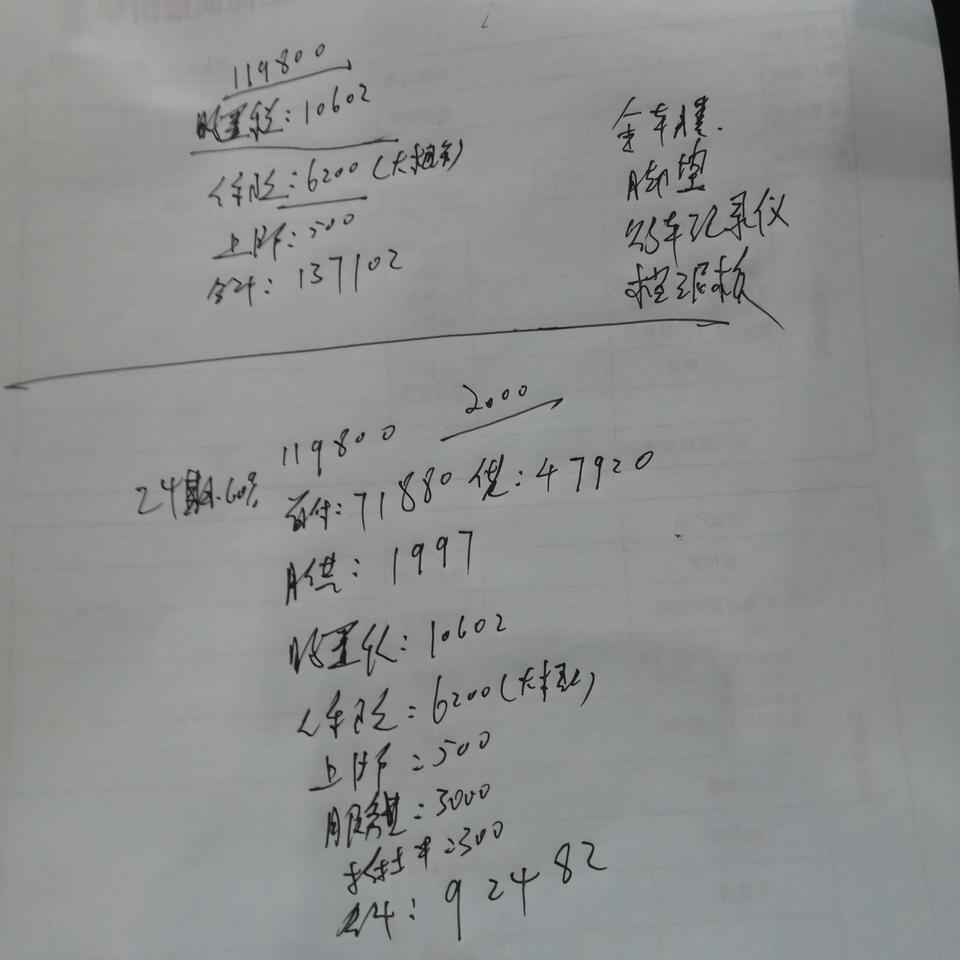 119800
购置税:10602
保险:6200(大概)
上牌:500
合计:137102
全车膜.
脚垫
行车记录仪
挡泥板
2000
119800
24期.60%
首付:71880 贷:47920
月供:1997
购置税:10602
保险:6200(大概)
上牌:500
服务费:3000
:300
合计:92482